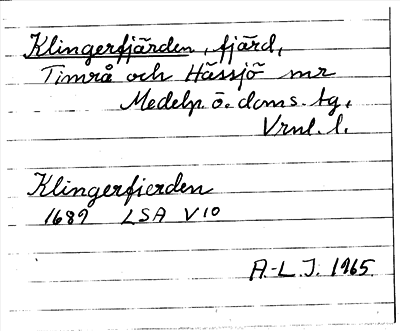 Klingerfjärden, fjärd,
Timrå och Hässjö snr
Medelp. ö. doms. tg,
Vrnl. l.
Klingerfierden
1689 LSA V10
A.-L. J. 1965.